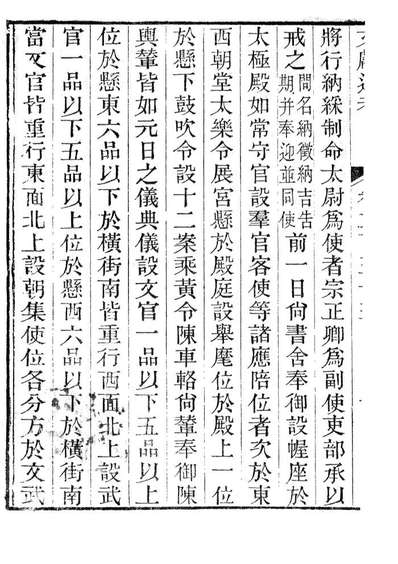 將行納綵制命太尉爲使者宗正卿爲副使吏部承以
戒之問名納徵納吉告期并奉迎並同使前一日尚書舍奉御設幄座於
太極殿如常守宮設羣官客使等諸應陪位者次於東
西朝堂太樂令展宮懸於殿庭設舉麾位於殿上一位
於懸下鼓吹令設十二案乘黃令陳車輅尙輦奉御陳
輿輦皆如元日之儀典儀設文官一品以下五品以上
位於懸東六品以下於橫街南皆重行西面北上設武
官一品以下五品以上位於懸西六品以下於橫街南
當文官皆重行東面北上設朝集使位各分方於文武